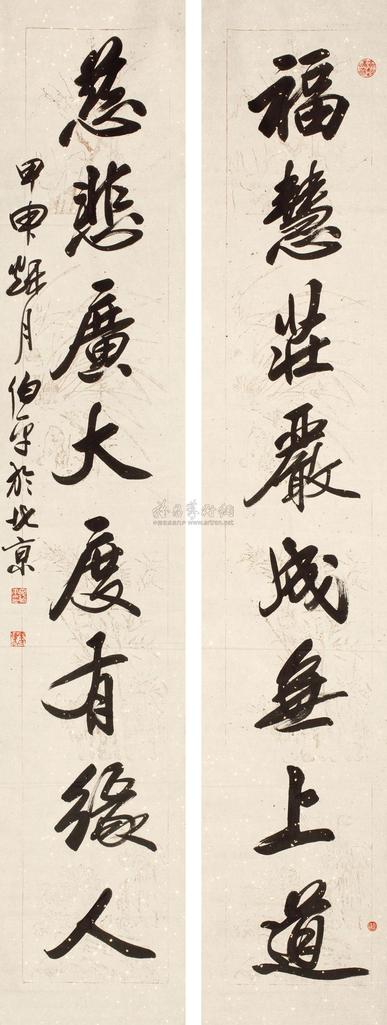 福慧莊嚴成無上道
慈悲廣大度有緣人
甲申榴月伯平於北京
www.artron.net